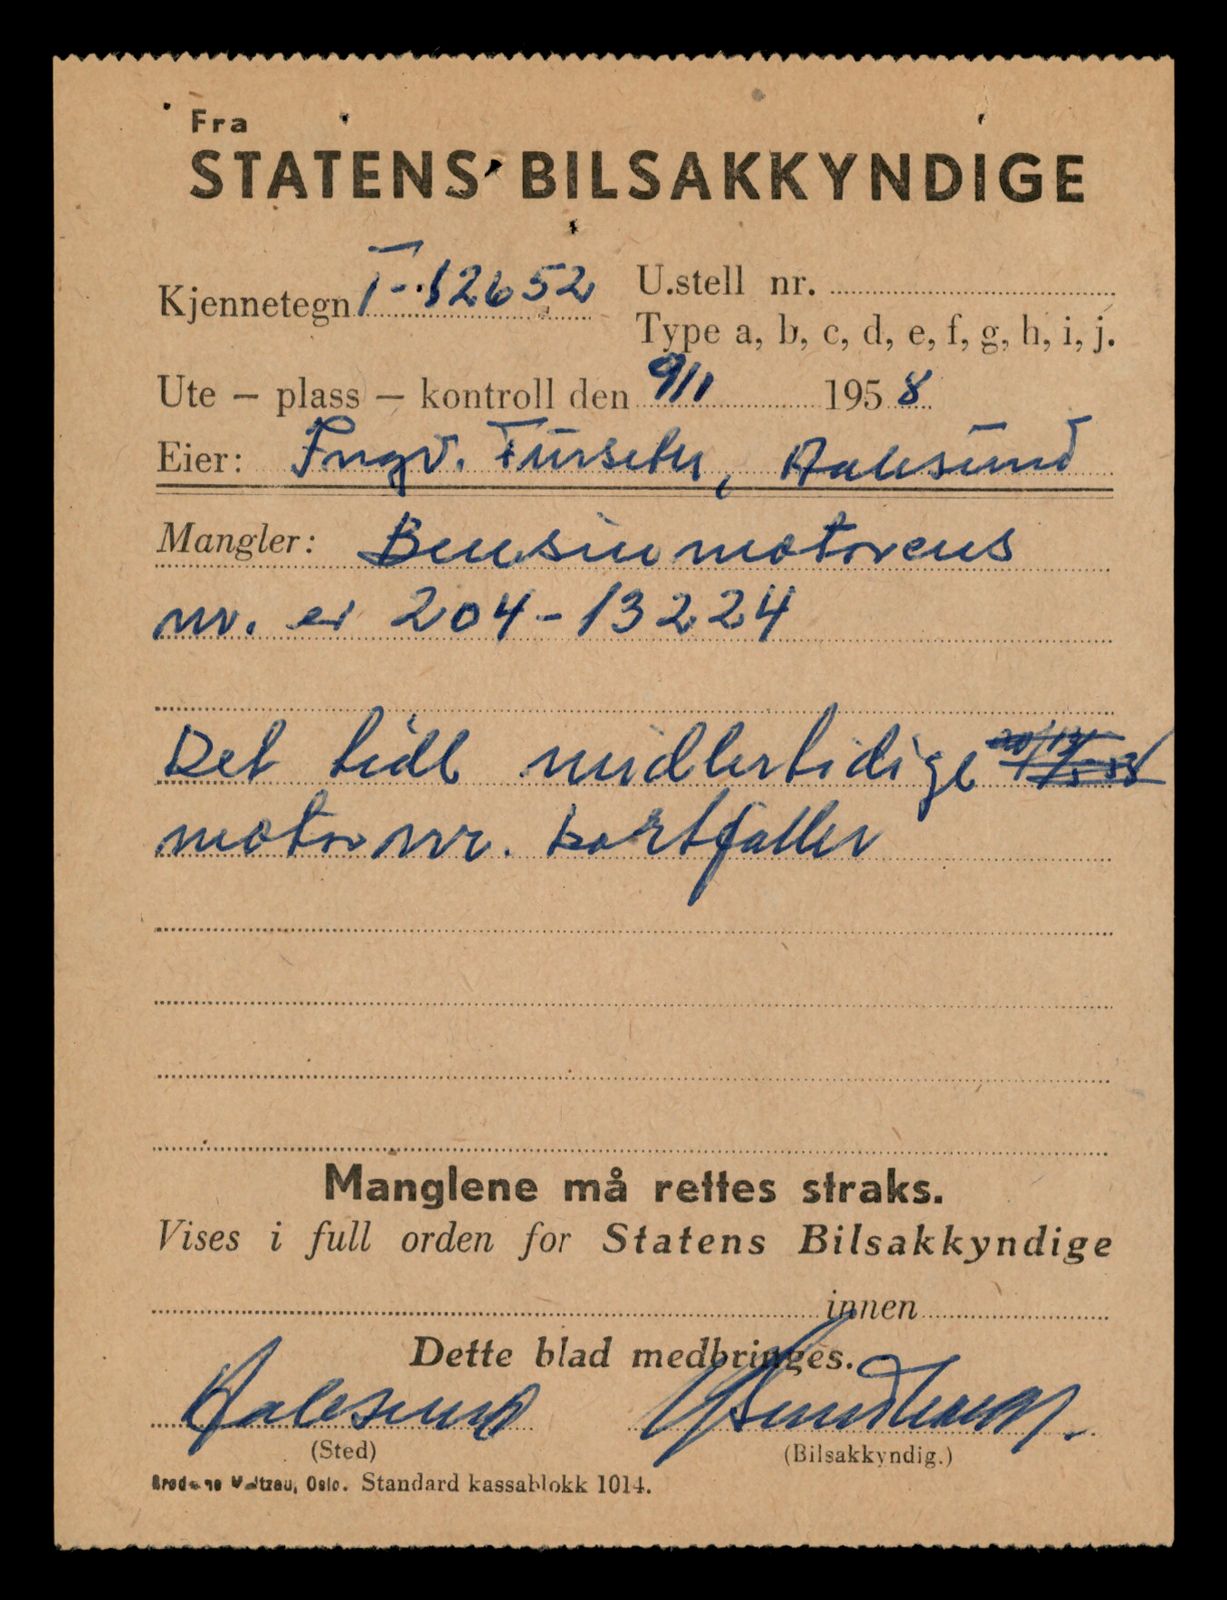 Fra
STATENS BILSAKKYNDIGE
Kjennetegn T-12652 U.stell nr.
Type a, b, c, d, e, f, g, h, i, j.
Ute – plass – kontroll den 9/1 1958
Eier: Ingv. Furseth, Aalesund
Mangler: Bensinmotorens
nr. er 204-13224
Det tidl midlertidige
motor nr. bortfaller
Manglene må rettes straks.
Vises i full orden for Statens Bilsakkyndige
innen
Dette blad medbringes.
Aalesund
(Sted) (Bilsakkyndig.)
Oslo. Standard kassablokk 1014.